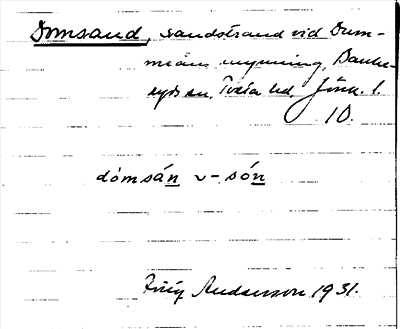 Domsand, sandstrand vid Dum-
meåns mynning, Banke-
ryds sn, Tveta hd, Jönk. l.
10.
dòmsán ν-són
Andersson 1931.